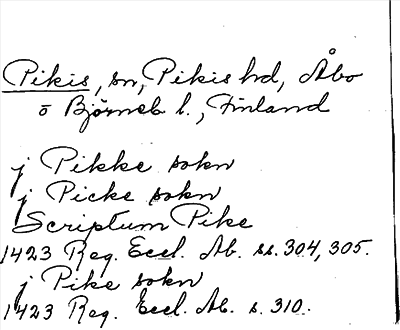 Pikis, sn, Pikis hd, Åbo
o Björneb l., Finland
j Pikke sokn
j Picke sokn
Scriptum Pike
1423 Reg. Eccl. Ab. ss. 304, 305.
j Pike sokn
1423 Reg. Eccl. Ab. s. 310.